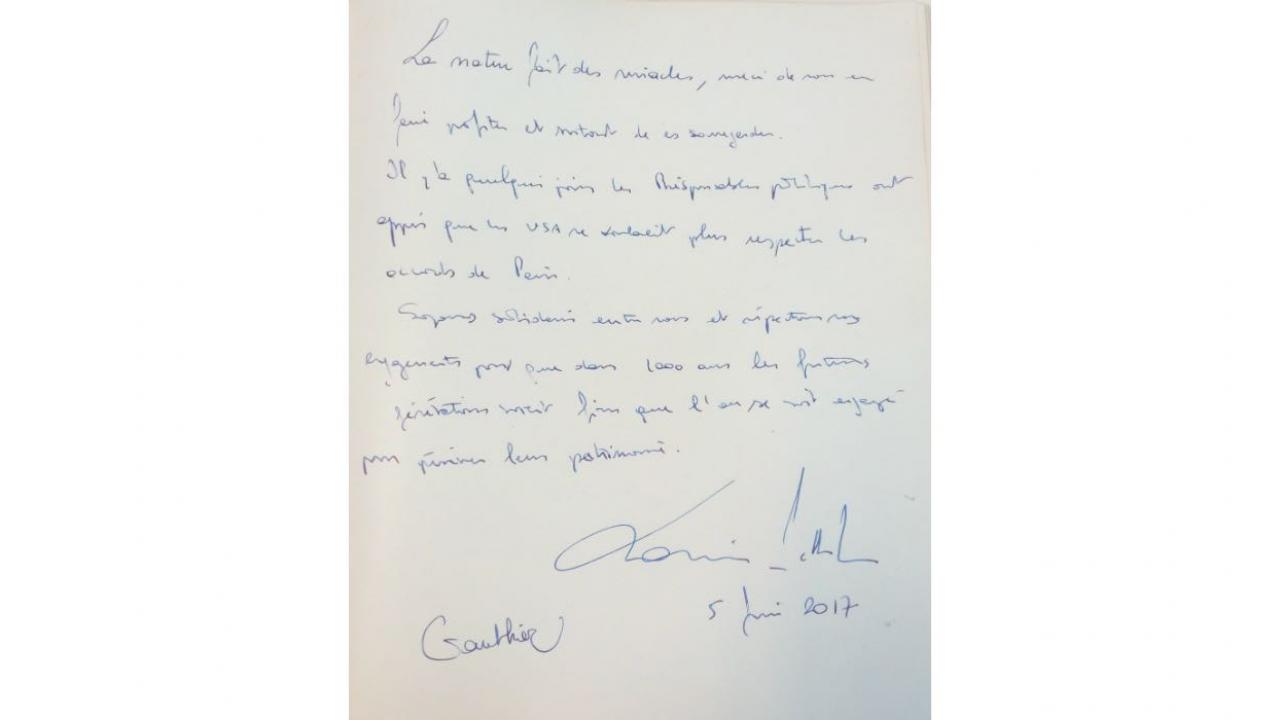 La nature fait des miracles, merci de nous en
faire profiter et surtout de les sauvegarder.
Il y a quelques jours les Responsables politiques ont
appris que les USA ne voulaient plus respecter les
accords de Paris.
Soyons solidaires entre nous et respectons nos
engagements pour que dans 1000 ans les futures
générations soient fiers que l'on se soit engagé
pour préserver leurs patrimoine.
5 Juin 2017
Gauthier